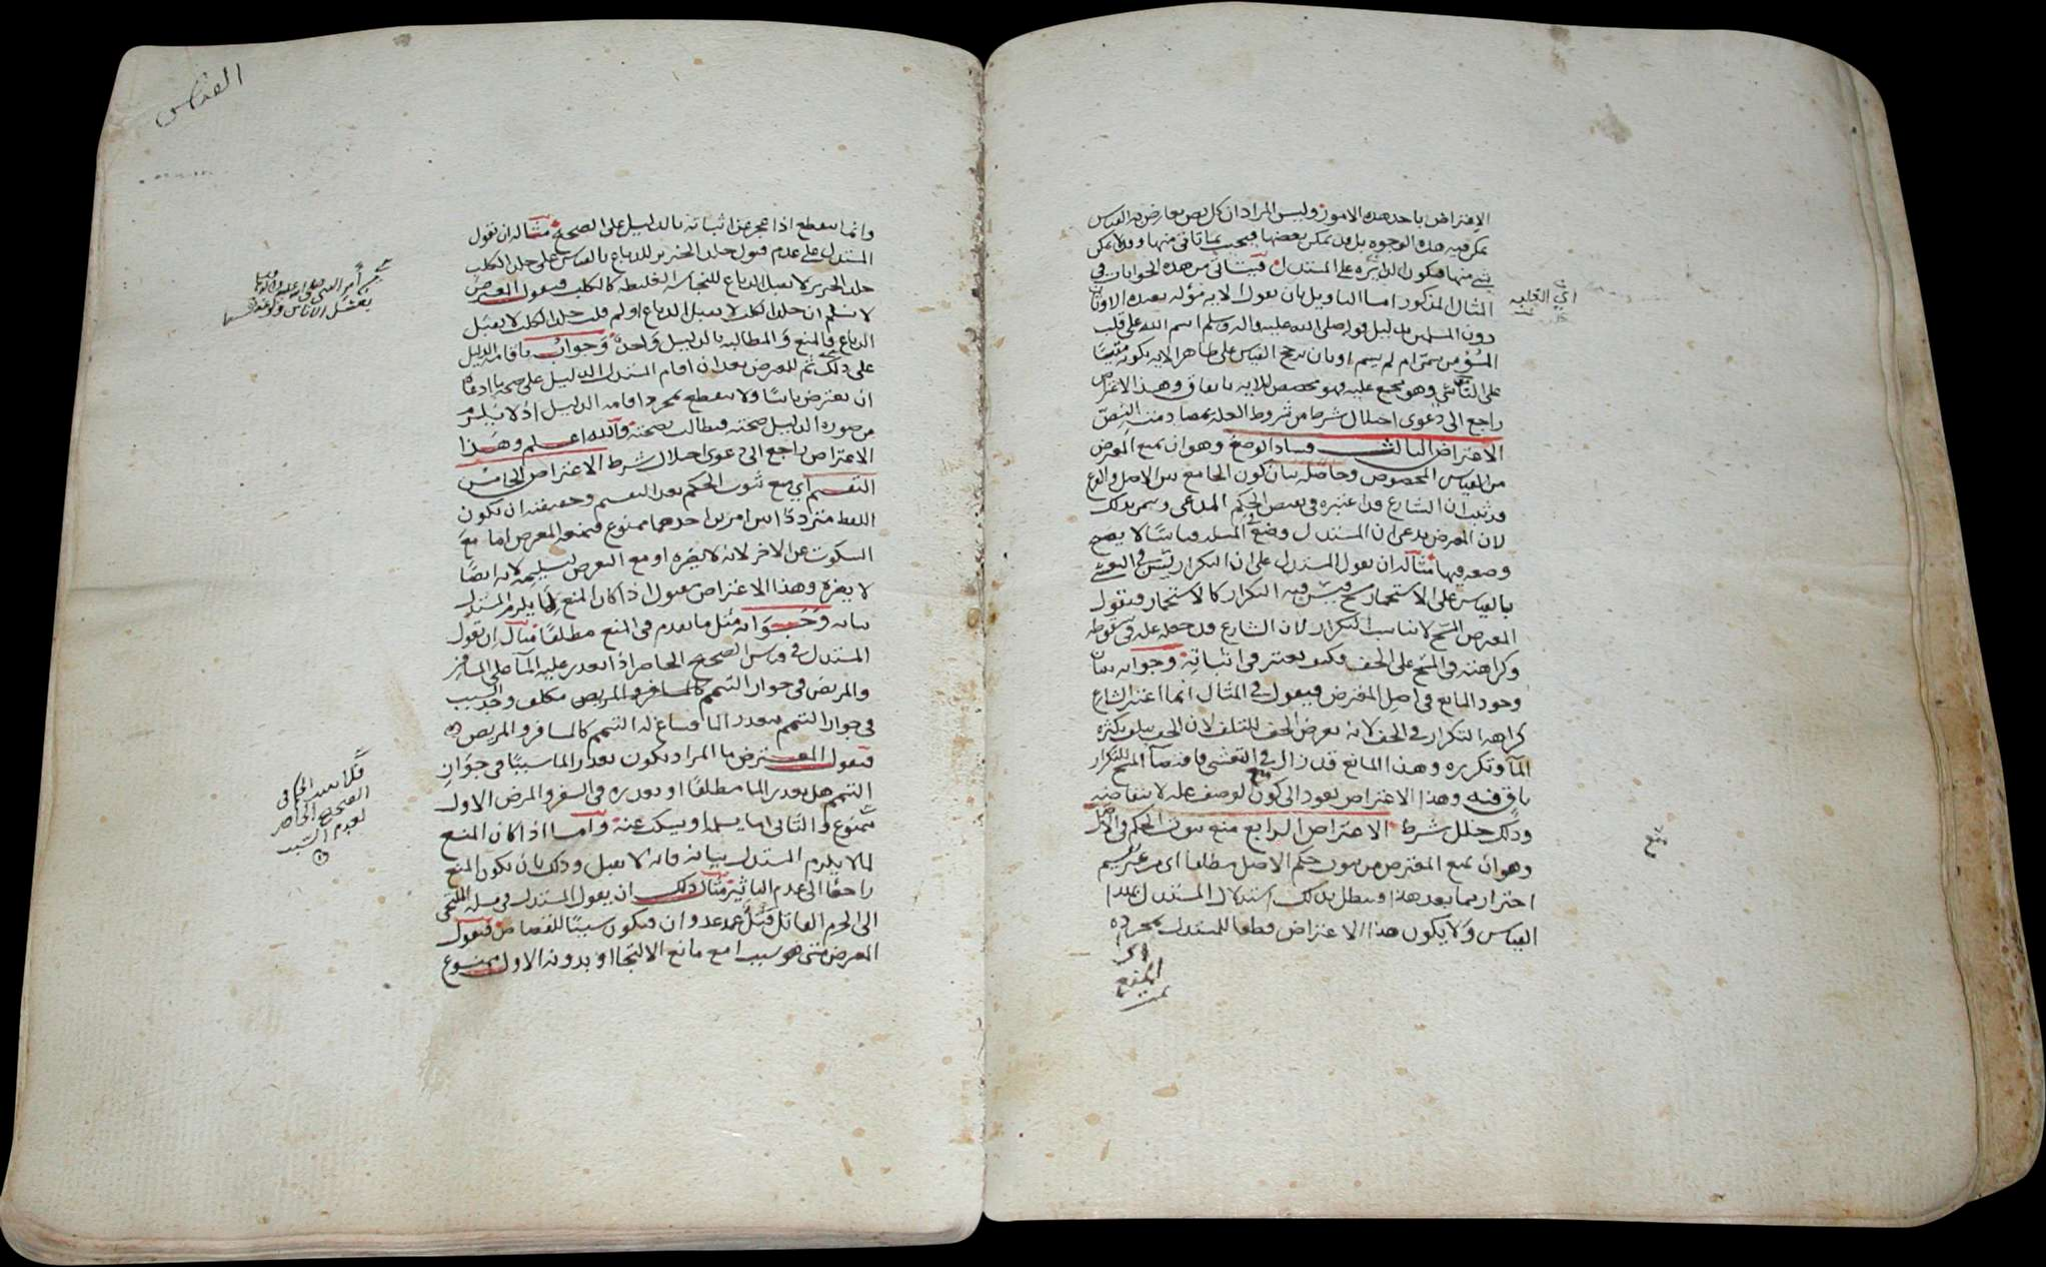 الاعتراض باحد هذه الامور وليس المراد ان كل نص يعارض به القياس
يمكن فيه هذه الوجوه بل قد يمكن بعضها فيجيب بما تاتى منها وقد لا يمكن
شي منها فتكون الدائرة على المستدل فيتاتى من هذه الجوابات في
المثال المذكور اما التاويل بان يقول الاية مؤله بعبدة الاوثان
دون المسلمين بدليل قوله صلى الله عليه واله وسلم اسم الله على قلب
المؤمن سمى ام لم يسم او بان يرجح القياس على ظاهر الاية بكونه مقيسا
على الناسي وهو مجمع عليه فهو مخصص للاية باتفاق وهذا الاعتراض
راجع الى دعوى اختلال شرط من شروط العلة بمصادمته النص
الاعتراض الثالث فساد الوضع وهو ان يمنع المعترض
من القياس المخصوص وحاصله بيان كون الجامع بين الاصل والفرع
قد ثبت ان الشارع قد اعتبره في نقيض الحكم المدعى وسمي بذلك
لان المعترض يدعي ان المستدل وضع في المسئلة قياسا لا يصح
وضعه فيها مثاله ان يقول المستدل على ان التكرار يسن في التمسح
بالقياس على الاستجمار مسح فيسن فيه التكرار كالاستجمار فيقول
المعترض المسح لا يناسب التكرار لان الشارع قد جعله علة في سقوطه
وكراهته في المسح على الخف فكيف يعتبر في اثباته وجوابه بيان
وجود المانع في اصل المعترض فيقول في المثال انما اعتبر الشارع
كراهة التكرار في الخف لانه تعرض الخف للتلف لان الخف يتلف بكثرة
المآ وتكرره وهذا المانع قد زال في
باق فيه وهذا الاعتراض يعود الى منع كون الوصف علة لانتقاضه
وذلك خلل شرط الاعتراض الرابع منع ثبوت الحكم في الاصل
وهو ان يمنع المعترض من ثبوت حكم الاصل مطلقا اى من غير تقسيم
احتراز مما بعد هذا ويبطل بذلك استدلال المستدل بهذا
القياس ولا يكون هذا الاعتراض قطعا للمستدل بمجرده
اي
المنع
تمت
منع
القياس
وانما ينقطع اذا عجز عن اثباته بالدليل على الصحيح مثاله ان يقول
المستدل على عدم قبول جلد الخنزير للدباغ بالقياس على جلد الكلب
جلد الخنزير لا يقبل الدباغ للنجاسة الغليظة كالكلب فيقول المعترض
لا نسلم ان جلد الكلب لا يقبل الدباغ او لم قلت جلد الكلب لا يقبل
الدباغ فالمنع والمطالبة بالدليل واحد وجوابه باقامة الدليل
على ذلك ثم للمعترض بعد ان اقام المستدل الدليل على صحة ما ادعاه
ان يعترض ثانيا ولا ينقطع بمجرد اقامة الدليل اذ لا يلزم
من صورة الدليل صحته فيطالب بصحته والله اعلم وهذا
الاعتراض راجع الى دعوى اختلال شرط الاعتراض الخامس
التقسيم اي منع ثبوت الحكم بعد التقسيم وحقيقته ان يكون
اللفظ مترددا بين امرين احدهما ممنوع فيمنعه المعترض اما مع
السكوت عن الاخر لانه لا يضره او مع التعرض لتسليمه لانه ايضا
لا يضره وهذا الاعتراض مقبول اذا كان المنع لما يلزم المستدل
بيانه وجوابه مثل ما تقدم في المنع مطلقا مثاله ان يقول
المستدل في قياس الصحيح الحاضر اذا تعذر عليه المآ على المسافر
والمريض في جواز التيمم كالمسافر والمريض مكلف وجد سبب
في جواز التيمم بتعذر المآ فساغ له التيمم كالمسافر والمريض
فيقول المعترض ما المراد بكون تعذر الما سببا في جواز
التيمم هل تعذر الما مطلقا او تعذره في السفر والمرض الاول
ممنوع والثاني اما يسلمه او يسكت عنه واما اذا كان المنع
لما لا يلزم المستدل بيانه فانه لا يقبل وذلك بان يكون المنع
راجعا الى عدم المانع مثال ذلك ان يقول المستدل في مسئلة الملتجي
الى الحرم القاتل قتل عمد عدوان فيكون سببا للقصاص فيقول
المعترض متى هو سبب امع مانع الالتجا او بدونه الاول ممنوع
قلنا
الصحيح الحاضر
لعدم السبب